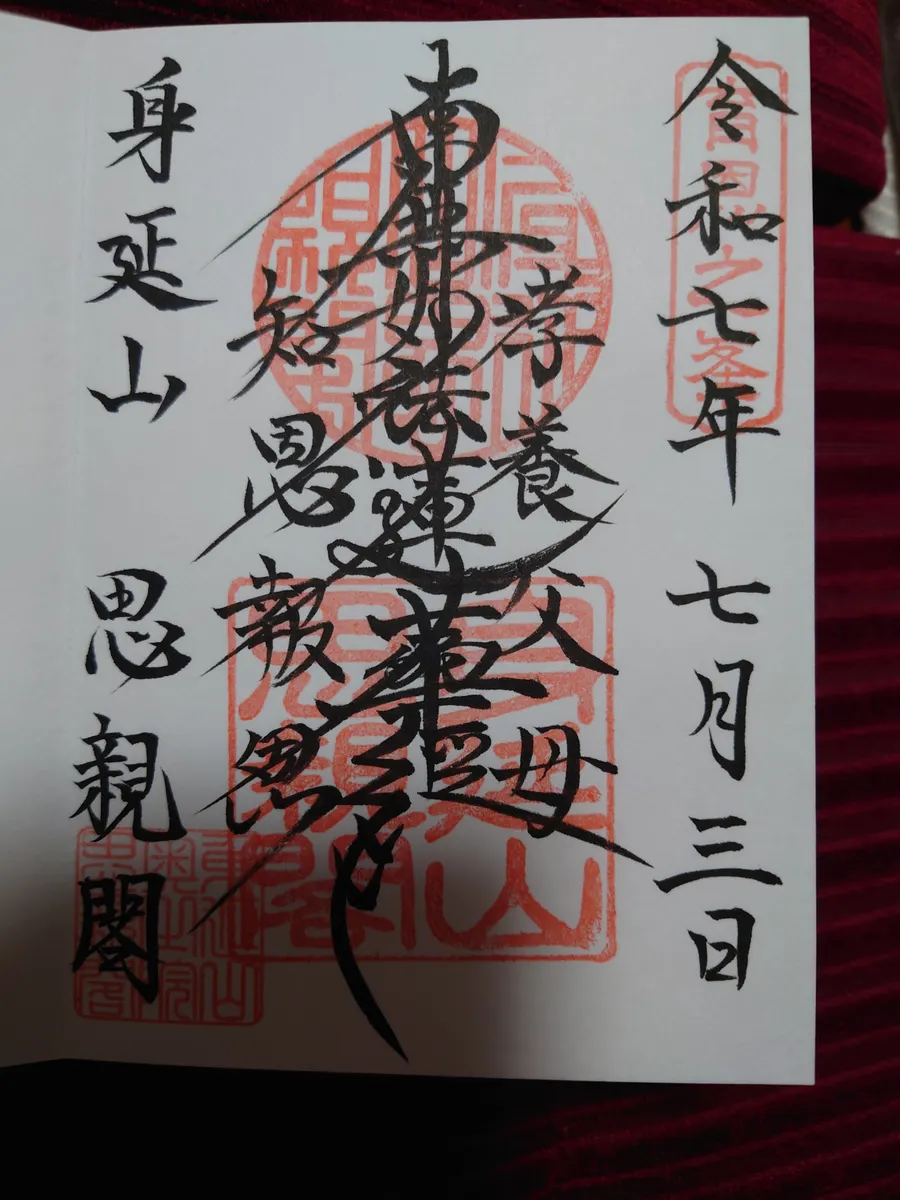 令和七年 七月三日
孝養父母
南無妙法蓮華経
知恩報恩
身延山 思親閣
身延山
思親閣